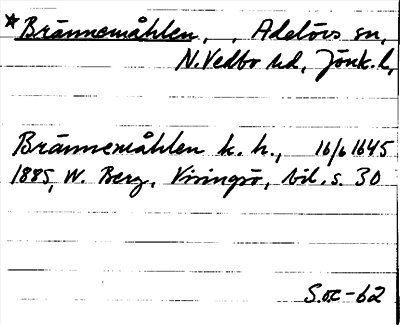 *Brännemåhlen, , Adelövs sn,
N. Vedbo hd, Jönk. l,
Brännemåhlen k. h., 16/6 1645
1885, W. Berg, Visingsö, bil. s. 30
S.œ-62